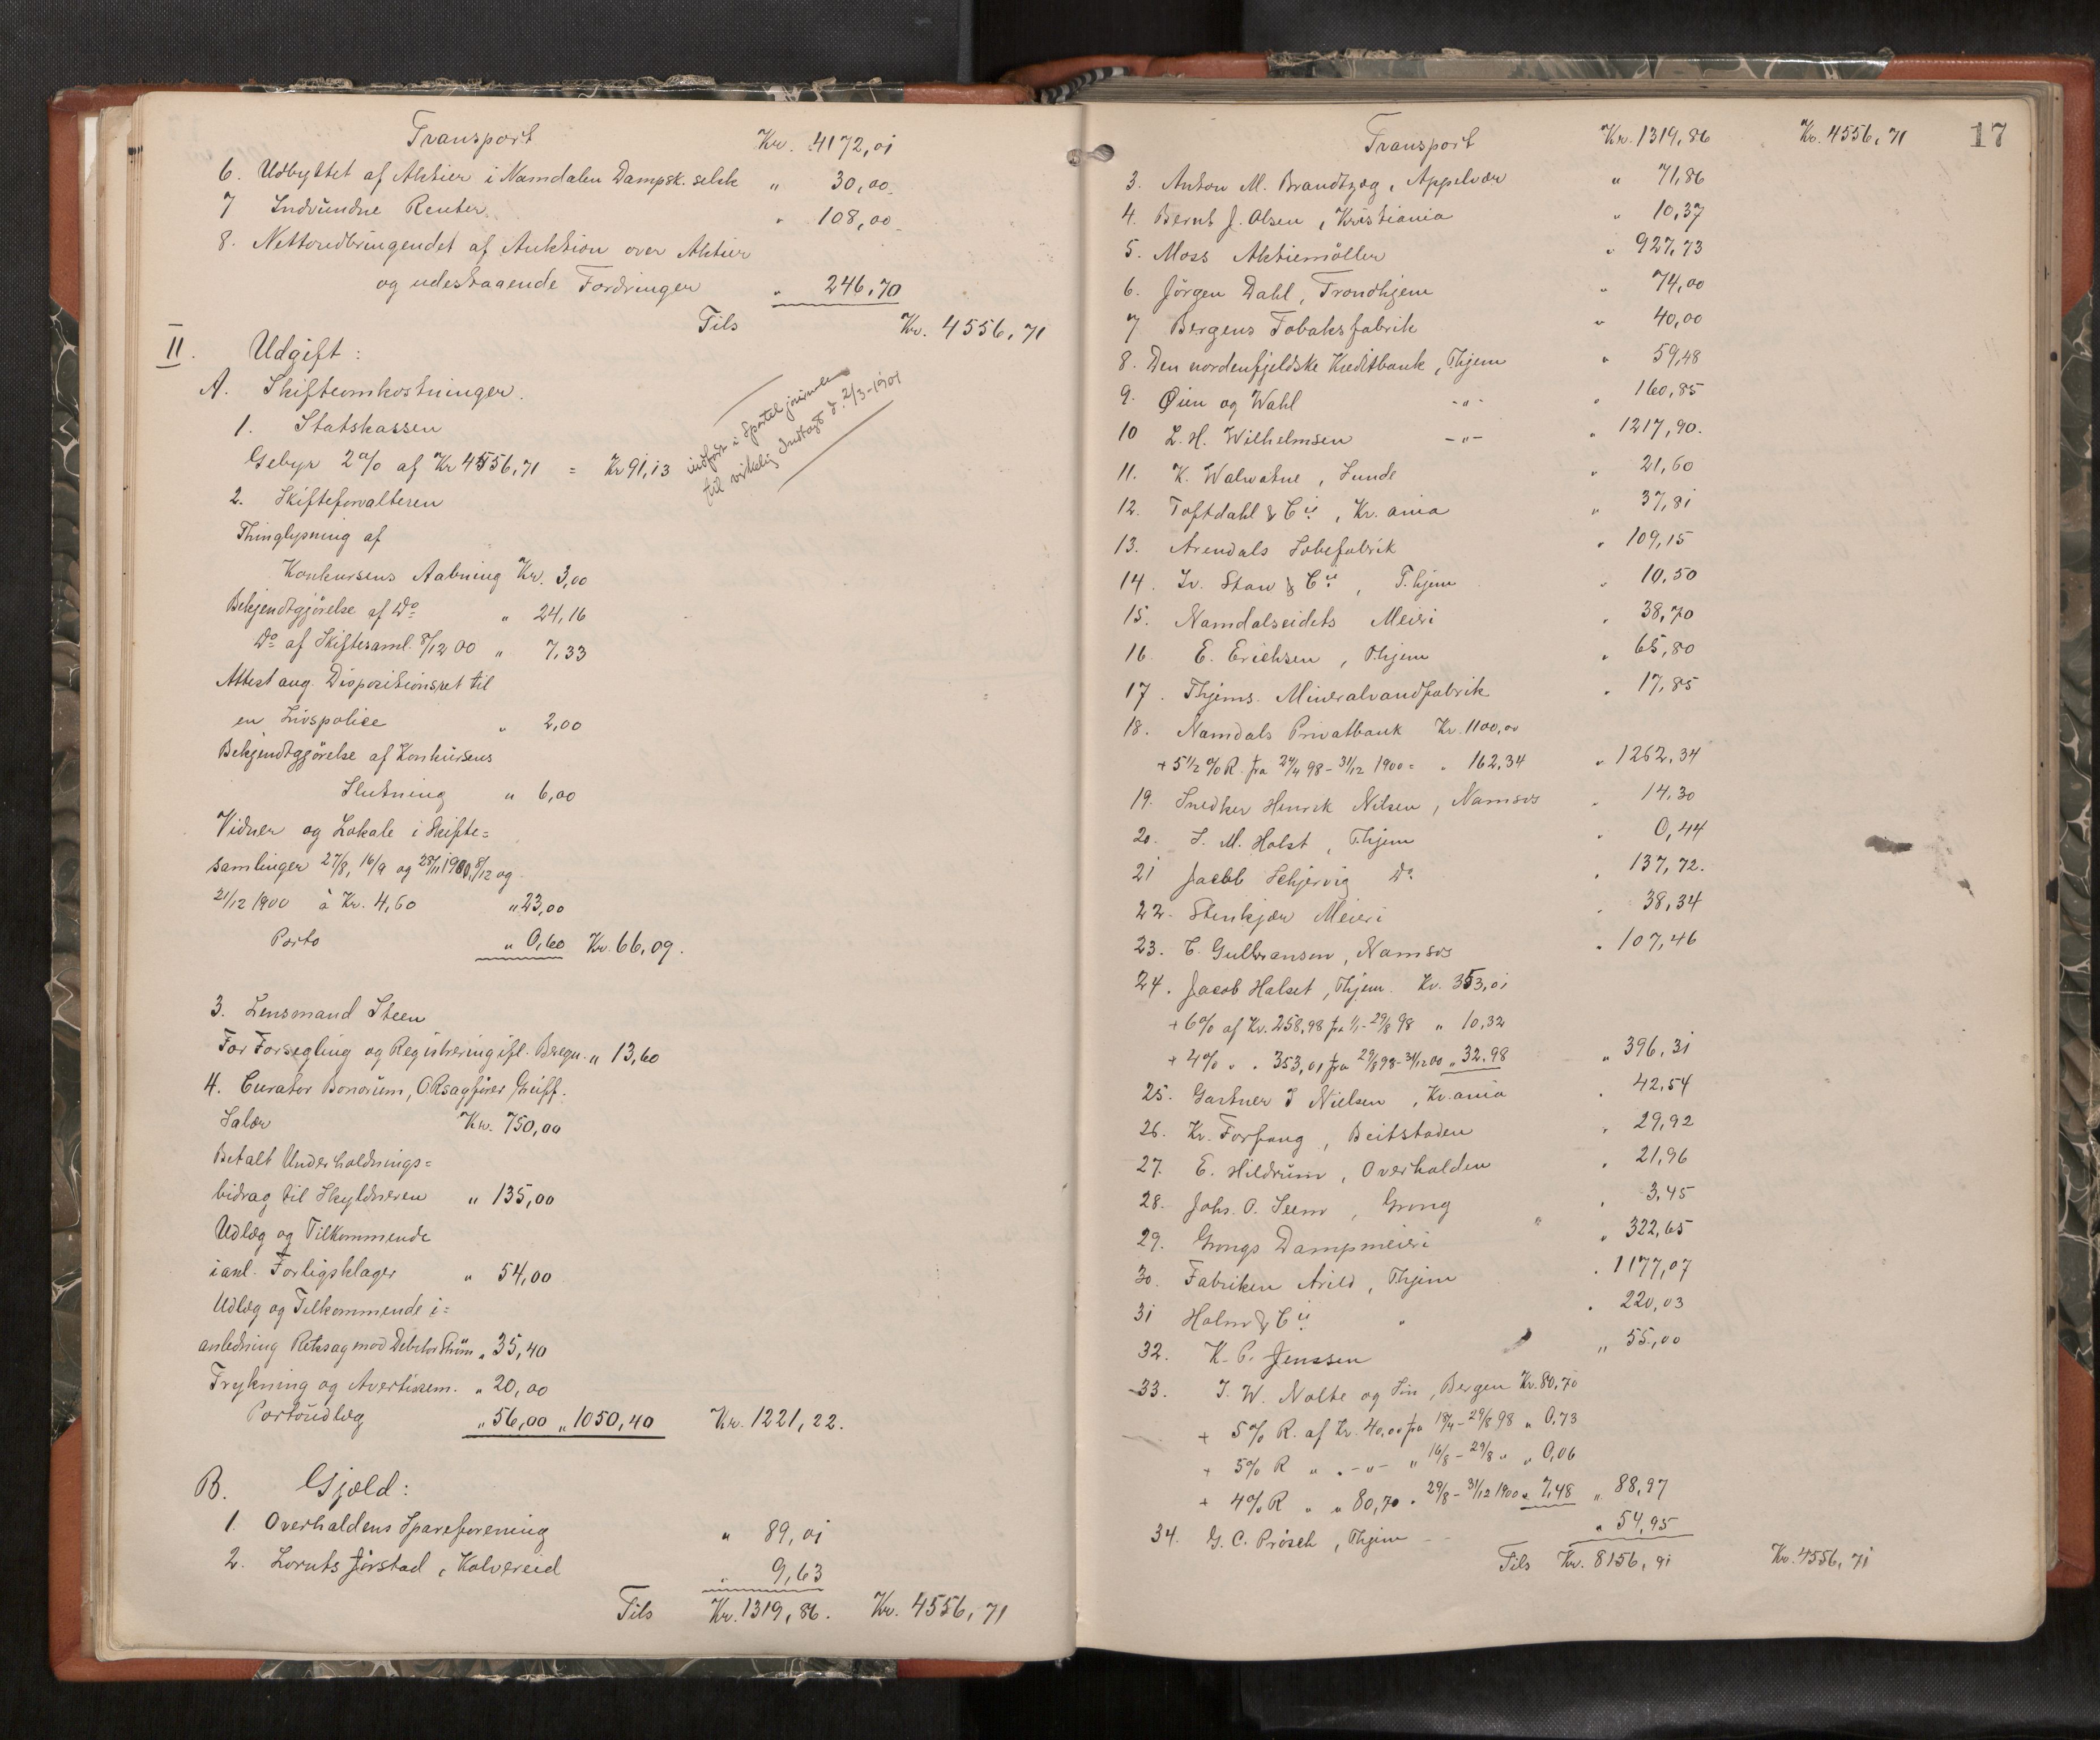 Transport Kr. 4172,01
6. Udbyttet af Aktier i Namdalen Dampsk. selsk " 30,00
7 Indvundne Renter " 108,00
8. Nettoudbringendet af Auktion over Aktier
og udestaaende Fordringer " 246,70
Tils Kr. 4556,71
II. Udgift:
A. Skifteomkostninger.
1. Statskassen
Gebyr 2% af Kr 4556,71 = Kr 91,13
indført i Sportel journalen
til virkelig Indtægt d. 2/3-1901
2. Skifteforvalteren
Thinglysning af
Konkursens Aabning Kr. 3,00
Bekjendtgjörelse af Do " 24,16
Do af Skiftesaml. 8/12 00 " 7,33
Attest ang. Dispositionsret til
en Livspolice " 2,00
Bekjendtgjörelse af Konkursens
Slutning " 6,00
Vidner og Lokale i Skifte=
samlinger 27/8, 16/9 og 28/11 1900, 8/12 og
21/12 1900 à Kr. 4,60 " 23,00
Porto " 0,60 Kr. 66,09.
3. Lensmand Steen
For Forsegling og Registrering ifl. Beregn. " 13,60
4. Curator Bonorum, O.Rsagfører Greiff.
Salær Kr. 750,00
Betalt Underholdnings=
bidrag til Skyldneren " 135,00
Udlæg og Tilkommende
i anl. Forligsklager " 54,00
Udlæg og Tilkommende i=
anledning Retssag mod Debitor Thüm " 35,40
Trykning og Avertissem. " 20,00
Portoudlæg " 56,00 " 1050,40 Kr. 1221,22.
B. Gjæld:
1. Overhaldens Spareforening " 89,01
2. Lornts Jörstad, Kolvereid " 9,63
Tils Kr. 1319,86. Kr. 4556,71
17
Transport Kr. 1319,86 Kr. 4556,71
3. Anton M. Brandtzæg, Appelvær " 71,86
4. Bernt J. Olsen, Kristiania " 10,37
5. Moss Aktiemöller " 927,73
6. Jörgen Dahl, Trondhjem " 74,00
7 Bergens Tobaksfabrik " 40,00
8. Den nordenfjeldske Kreditbank, Thjem " 59,48
9. Øien og Wahl -"- " 160,85
10 L. H. Wilhelmsen -"- " 1217,90.
11. K. Walvatne, Lunde " 21,60
12. Toftdahl & Cie, Kr.ania " 37,81
13. Arendals Sobefabrik " 109,15
14. Iv. Staw & Cie, T.hjem " 10,50
15. Namdalseidets Meieri " 38,70
16 E. Erichsen, Thjem " 65,80
17. Thjems. Mineralvandfabrik " 17,85
18. Namdals Privatbank Kr. 1100,00
+ 5 1/2 % R. fra 24/4 98 - 31/12 1900 = " 162,34 " 1262,34
19. Snedker Henrik Nilsen, Namsos " 14,30
20. S. M. Holst, Thjem " 0,44
21 Jacob Schjervig Do " 137,72.
22. Stenkjær Meieri " 38,34
23. C. Gulbransen, Namsos " 107,46
24. Jacob Halset, Thjem. Kr. 353,01
+ 6% af Kr. 258,98 fra 1/1 - 29/8 98 " 10,32
+ 4% " " 353,01 fra 29/8 98 - 31/12 00 " 32,98 " 396,31
25. Gartner J Nielsen, Kr.ania " 42,54
26. Kr. Forfang, Beitstaden " 29,92
27. E. Hildrum, Overhalden " 21,96
28. Johs. O. Seem, Grong " 3,45
29. Grongs Dampmeieri " 322,65
30. Fabriken Arild, Thjem " 1177,07
31 Holm & Cie " " 220,03
32. K. P. Jenssen " 55,00
33. J. W. Nolte og Sön, Bergen Kr. 80,70
+ 5% R. af Kr. 40,00 fra 18/4 - 29/8 98 " 0,73
+ 5% R " " -"- " 16/8 - 29/8 " " 0,06
+ 4% R " " 80,70 " 29/8 - 31/12 1900 " 7,48 " 88,97
34. G. C. Prösch, Thjem " 54,95
Tils Kr. 8156,91 Kr. 4556,71